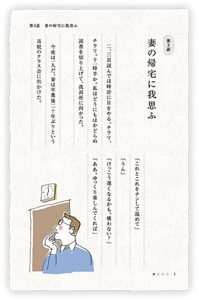 第1話　妻の帰宅に我思ふ
第1話
妻の帰宅に我思ふ
「これとこれをチンして温めて」
「うん」
「けっこう遅くなるかも。構わない？」
「ああ、ゆっくり楽しんでくれば」
今夜は一人だ。妻は卒業後二十年ぶりという
高校のクラス会に出かけた。
二、三頁読んでは時計に目をやる。チラリ、
チラリ。十一時半か。私はどうにもはかどらぬ
読書を切り上げて、洗面所に向かった。
1